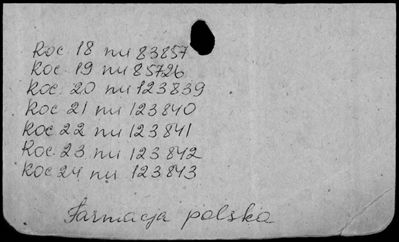 Roc. 18 nu 83857
Roc. 19 nu 85726
Roc. 20 nu 123839
Roc 21 nu 123840
Roc 22 nu 123841
Roc. 23 nu 123842
Roc 24 nu 123843
Farmacja polska